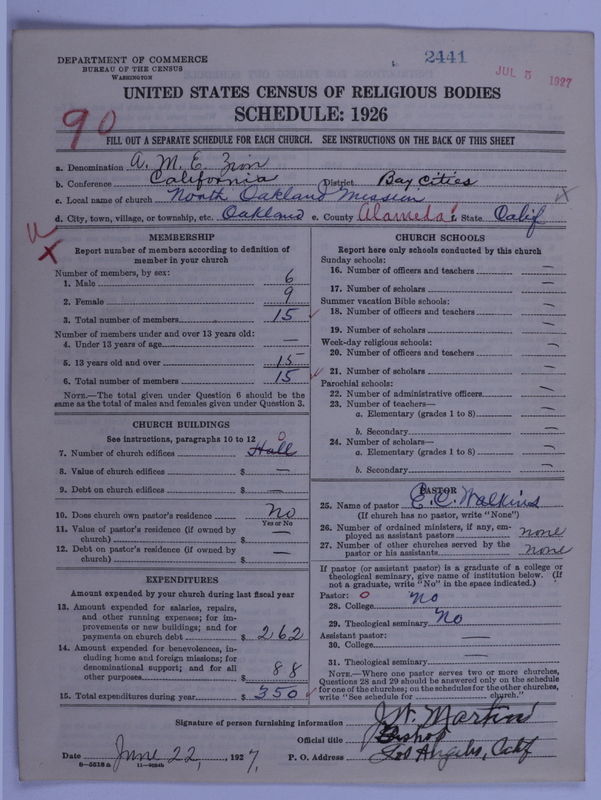 DEPARTMENT OF COMMERCE
BUREAU OF THE CENSUS
WASHINGTON
2441
JUL 5 1927
UNITED STATES CENSUS OF RELIGIOUS BODIES
SCHEDULE: 1926
90
FILL OUT A SEPARATE SCHEDULE FOR EACH CHURCH. SEE INSTRUCTIONS ON THE BACK OF THIS SHEET
a. Denomination A. M. E. Zion
b. Conference California District Bay Cities
c. Local name of church North Oakland Mission x
d. City, town, village, or township, etc. Oakland e. County Alameda f. State Calif
x
MEMBERSHIP
Report number of members according to definition of
member in your church
Number of members, by sex:
1. Male 6
2. Female 9
3. Total number of members 15
Number of members under and over 13 years old:
4. Under 13 years of age —
5. 13 years old and over 15
6. Total number of members 15
NOTE.—The total given under Question 6 should be the
same as the total of males and females given under Question 3.
CHURCH BUILDINGS
See instructions, paragraphs 10 to 12
0
7. Number of church edifices Hall
8. Value of church edifices $ —
9. Debt on church edifices $ —
10. Does church own pastor's residence No
Yes or No
11. Value of pastor's residence (if owned by
church) $ —
12. Debt on pastor's residence (if owned by
church) $ —
EXPENDITURES
Amount expended by your church during last fiscal year
13. Amount expended for salaries, repairs,
and other running expenses; for im-
provements or new buildings; and for
payments on church debt $ 262
14. Amount expended for benevolences, in-
cluding home and foreign missions; for
denominational support; and for all
other purposes $ 88
15. Total expenditures during year $ 350
CHURCH SCHOOLS
Report here only schools conducted by this church
Sunday schools:
16. Number of officers and teachers —
17. Number of scholars —
Summer vacation Bible schools:
18. Number of officers and teachers —
19. Number of scholars —
Week-day religious schools:
20. Number of officers and teachers —
21. Number of scholars —
Parochial schools:
22. Number of administrative officers —
23. Number of teachers—
a. Elementary (grades 1 to 8) —
b. Secondary —
24. Number of scholars—
a. Elementary (grades 1 to 8) —
b. Secondary —
PASTOR
25. Name of pastor E. C. Walkins
(If church has no pastor, write "None")
26. Number of ordained ministers, if any, em-
ployed as assistant pastors none
27. Number of other churches served by the
pastor or his assistants none
If pastor (or assistant pastor) is a graduate of a college or
theological seminary, give name of institution below. (If
not a graduate, write "No" in the space indicated.)
Pastor: 0
28. College No
29. Theological seminary No
Assistant pastor: —
30. College
31. Theological seminary —
NOTE.—Where one pastor serves two or more churches,
Questions 28 and 29 should be answered only on the schedule
for one of the churches; on the schedules for the other churches,
write "See schedule for church."
Signature of person furnishing information J. W. Martin
Official title Bishop
Date June 22, 1927, P. O. Address Los Angeles, Calif
8—5518 a